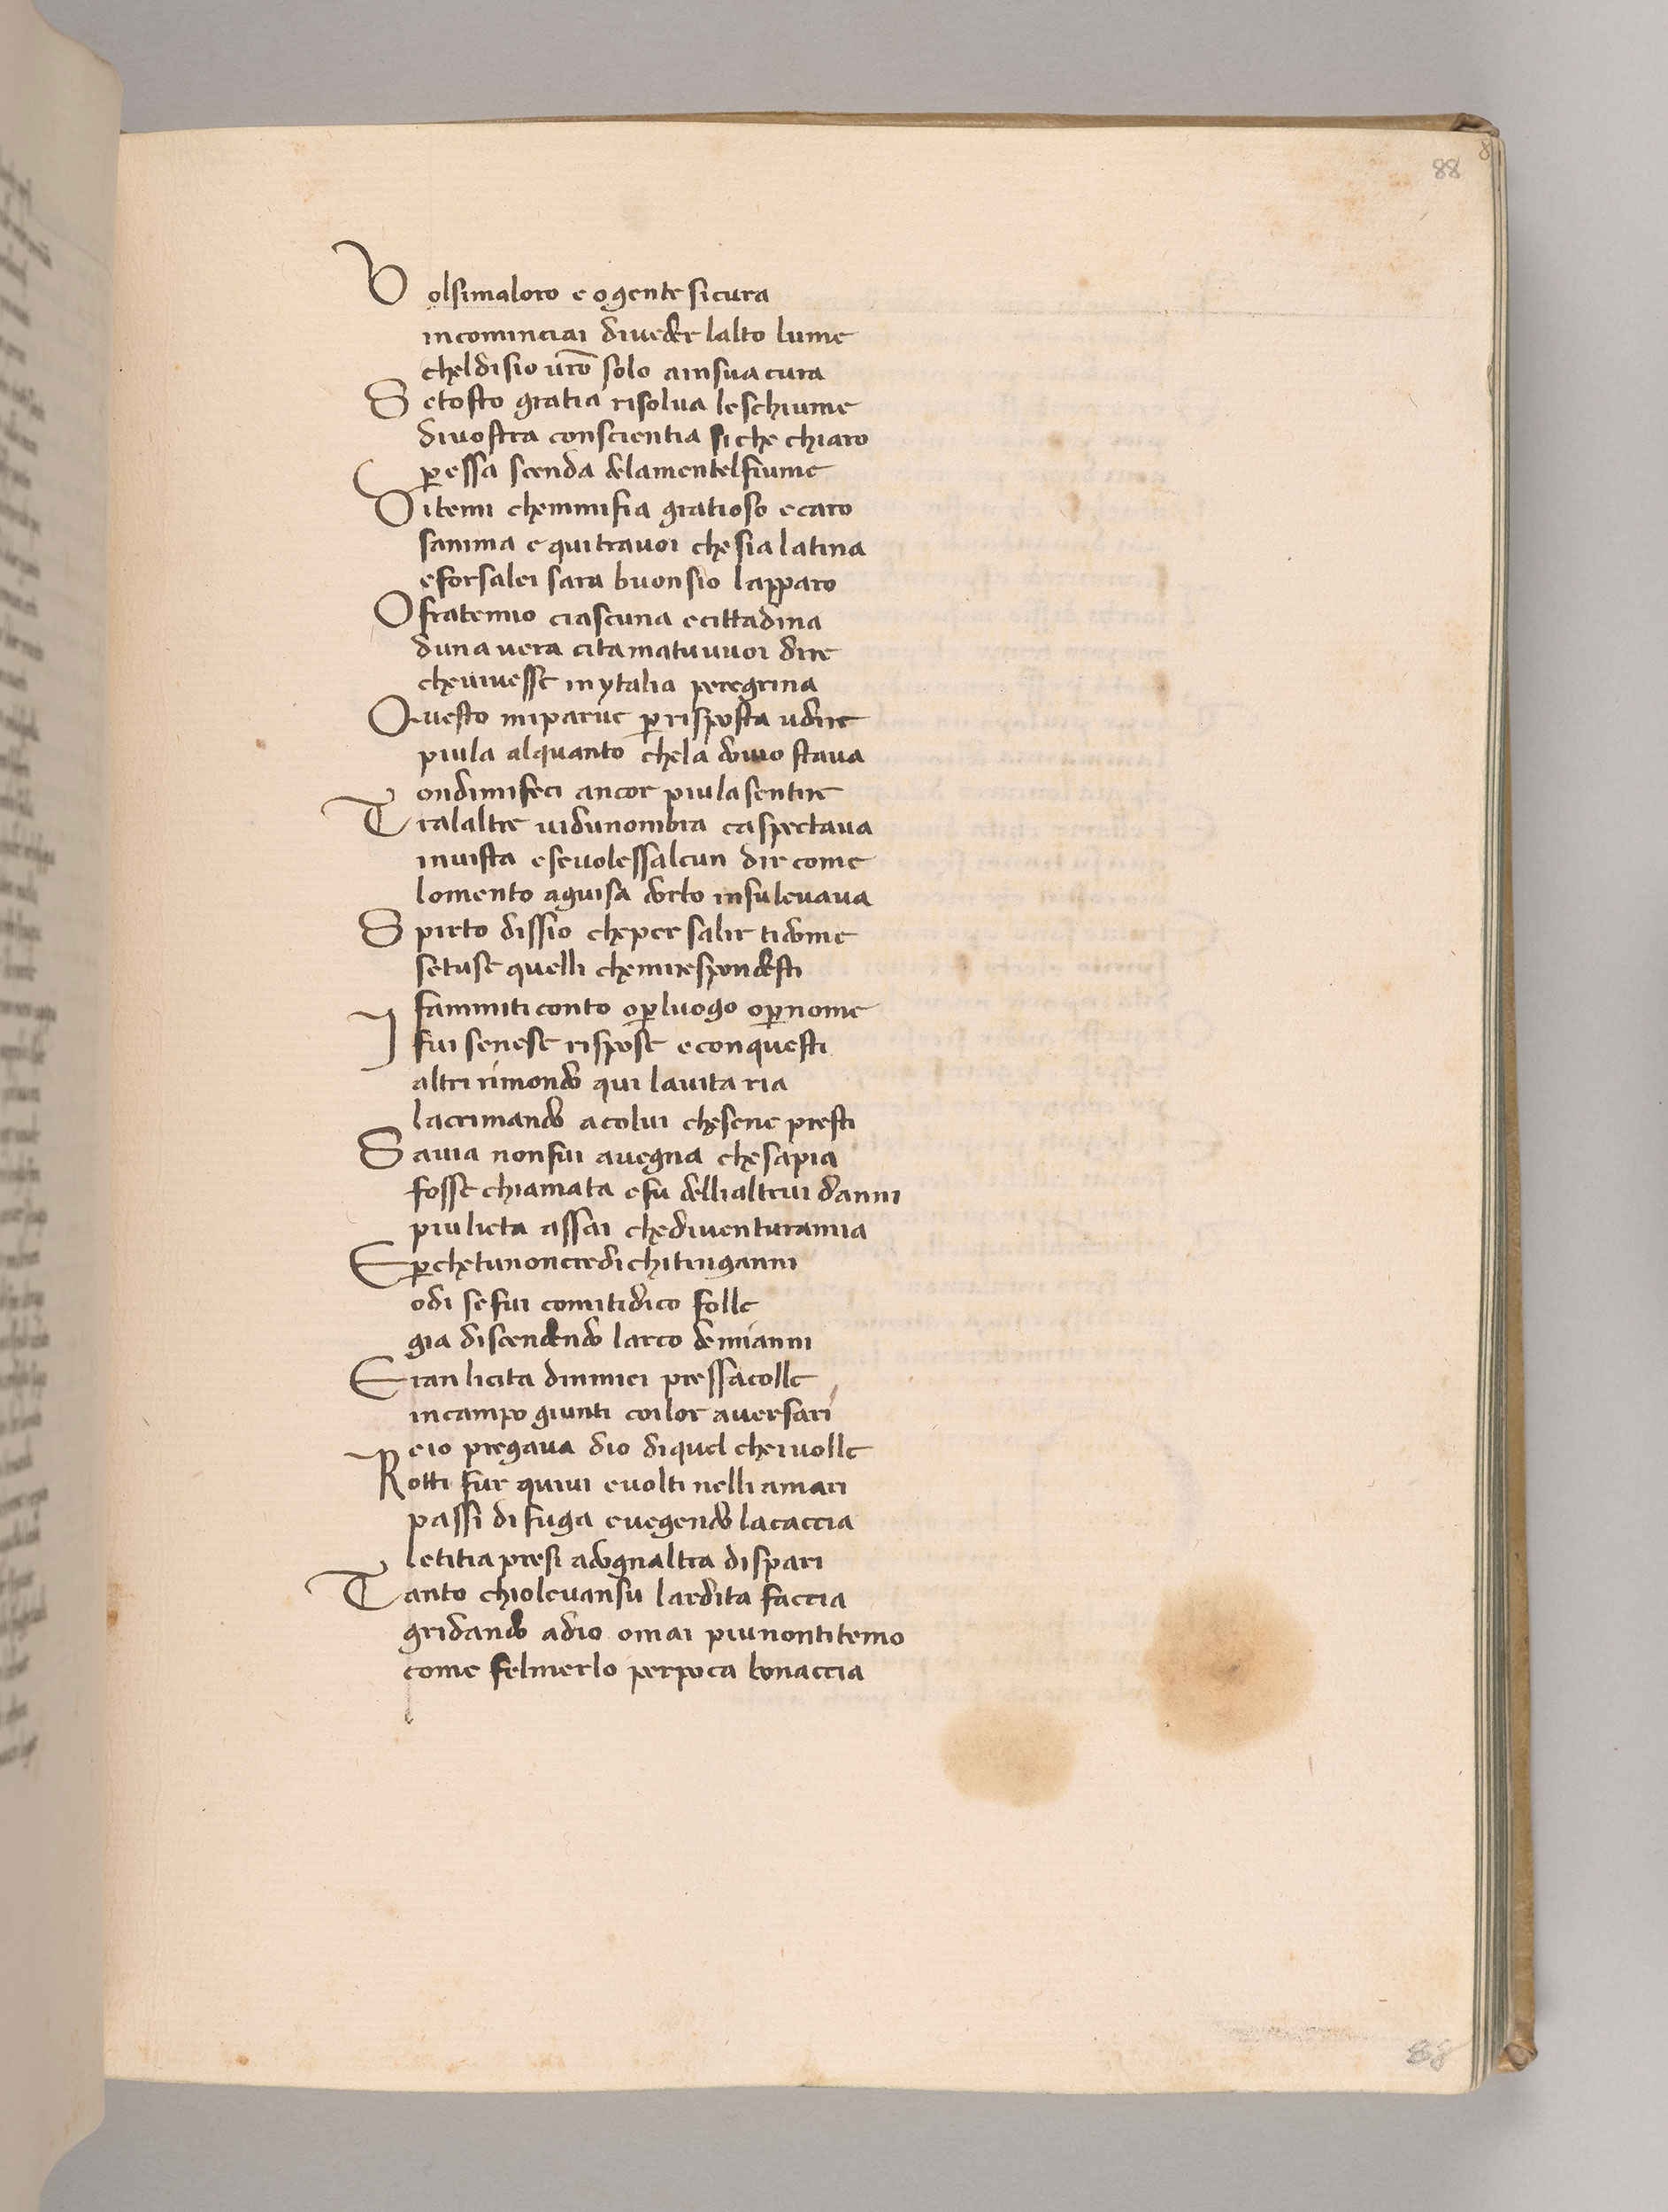 88
Volsimaloro e ogente sicura
incominciai diveder lalto lume
cheldisio vro solo ainsua cura
Setosto gratia risolua leschiume
divostra conscientia siche chiaro
p essa scenda delamentelfiume
Ditemi chemmifia gratioso ecaro
sanima e quitravoi che sia latina
eforsalei sara buonsio lapparo
Ofratemio ciascuna ecittadina
duna vera cita matuvuoi dire
cheuiuesse inytalia peregrina
Questo miparue p risposta udire
piula alquanto chela dovio stava
ondimifeci ancor piulasentire
Tralaltre vidunombra caspectava
invista esevolessalcun dir come
lomento aguisa dorto insulevava
Spirto dissio cheper salir tidome
setuse quelli chemirespondesti
fammiticonto opluogo opnome
I fui senese rispose econquesti
altri rimondo qui lavita ria
lacrimando acolui chesene presti
Savia nonfui avegna chesapia
fosse chiamata efu delli altrui danni
piulieta assai chediventuramia
Epchetunoncredi chitinganni
odi sefui comitidico folle
gia discendendo larco demianni
Eran licita dimiei pressacolle
incampo giunti coilor aversari
eio pregava dio diquel cheivolle
Rotti fur quivi evolti nelli amari
passi di fuga evegendo lacaccia
letitia presi adognaltra dispari
Tanto chiolevansu lardita faccia
gridando adio omai piunontitemo
come felmerlo perpoca bonaccia
88